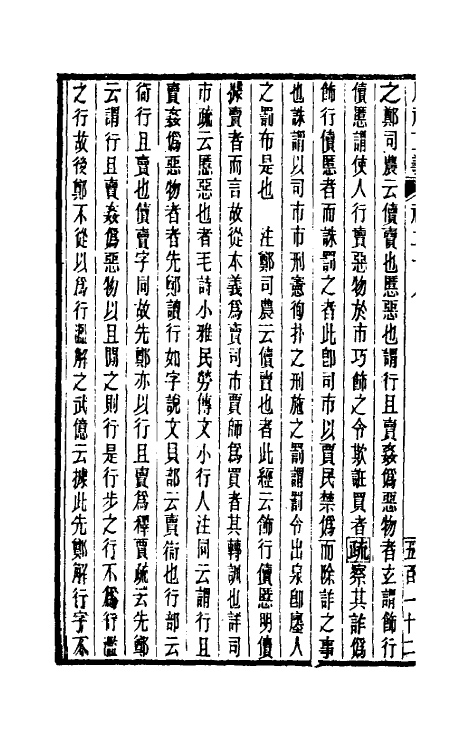 之鄭司農云儥賣也慝惡也謂行且賣姦僞惡物者玄謂飾行
儥慝謂使人行賣惡物於市巧飾之令欺誑買者疏察其詐僞
飾行儥慝者而誅罰之者此卽司市以賈民禁僞而除詐之事
也誅謂以司市市刑憲徇扑之刑施之罰謂罰令出泉卽廛人
之罰布是也 注鄭司農云儥賣也者此經云飾行儥慝明儥
據賣者而言故從本義爲賣司市賈師爲買者其轉訓也詳司
市疏云慝惡也者毛詩小雅民勞傳文小行人注同云謂行且
賣姦僞惡物者者先鄭讀行如字說文貝部云賣衒也行部云
衒行且賣也儥賣字同故先鄭亦以行且賣爲釋賈疏云先鄭
云謂行且賣姦僞惡物以且閒之則行是行步之行不爲行濫
之行故後鄭不從以爲行濫解之武億云據此先鄭解行字不
五百一十二